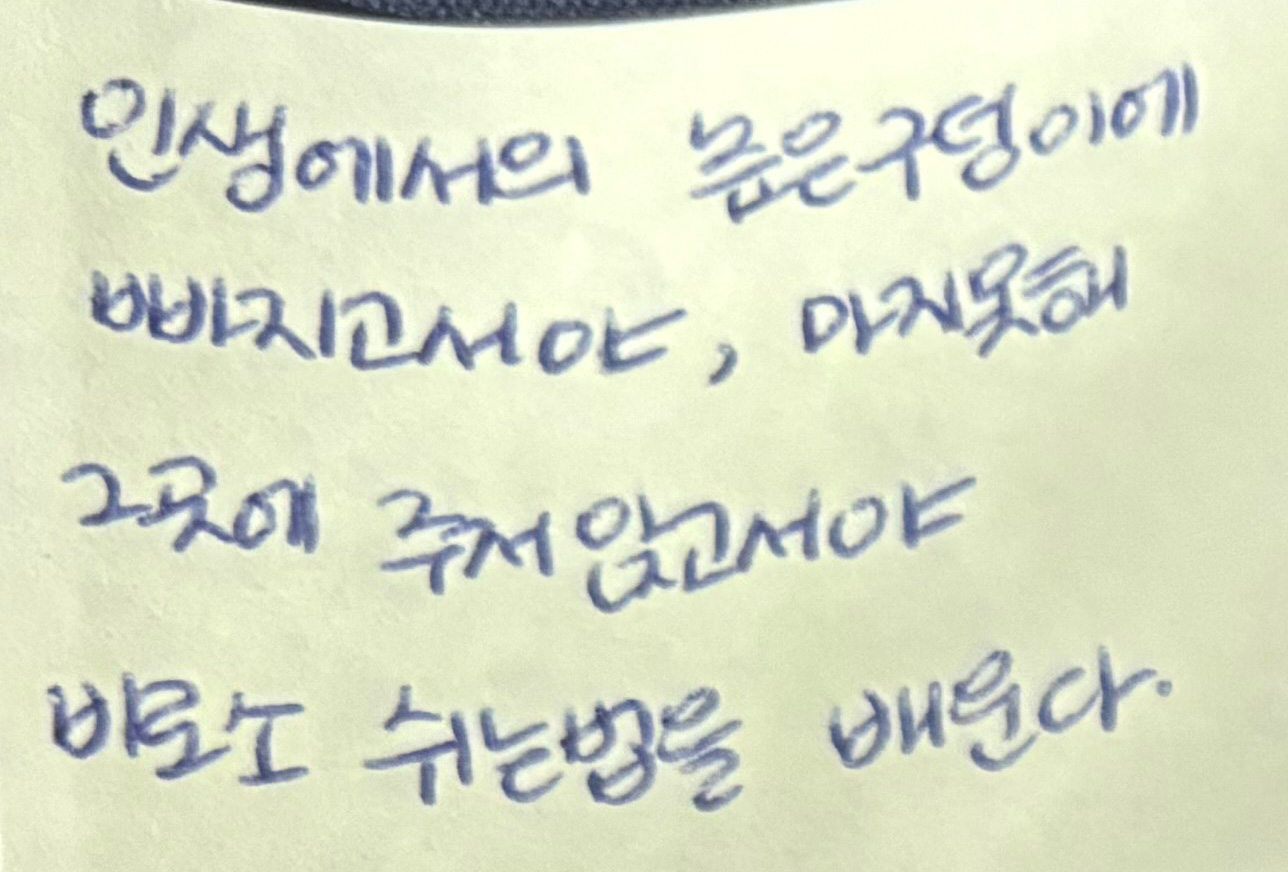 인생에서의 높은구덩이에
빠지고서야, 마지못해
그곳에 주저앉고서야
비로소 쉬는법을 배운다.